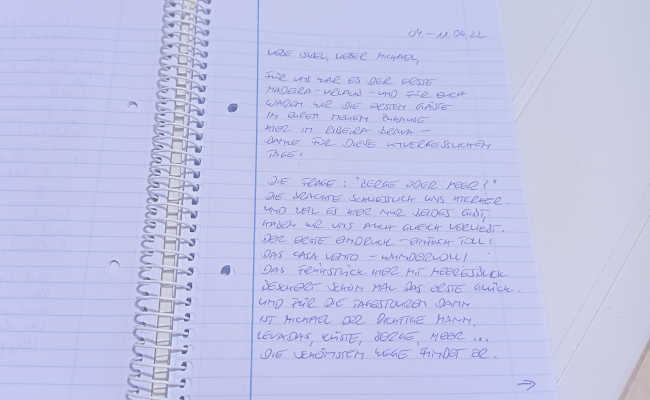 04.-11.04.22
LIEBE SIGRI, LIEBER MICHAEL,
FÜR UNS WAR ES DER ERSTE
MADEIRA-URLAUB - UND FÜR EUCH
WAREN WIR DIE ERSTEN GÄSTE
IN EUREM NEUEN ZUHAUSE
HIER IN RIBEIRA BRAVA -
DANKE FÜR DIESE UNVERGESSLICHEN
TAGE!
DIE FRAGE: "BERGE ODER MEER?"
DIE BRACHTE SCHLIESSLICH UNS HIERHER.
UND WEIL ES HIER NUR BEIDES GIBT,
HABEN WIR UNS AUCH GLEICH VERLIEBT.
DER ERSTE EINDRUCK - EINFACH TOLL!
DAS CASA VENTO - WUNDERVOLL!
DAS FRÜHSTÜCK HIER MIT MEERESBLICK
BESCHERT SCHON MAL DAS ERSTE GLÜCK.
UND FÜR DIE TAGESTOUREN DANN
IST MICHAEL DER RICHTIGE MANN.
LEVADAS, KÜSTE, BERGE, MEER ...
DIE SCHÖNSTEN WEGE FINDET ER.
→